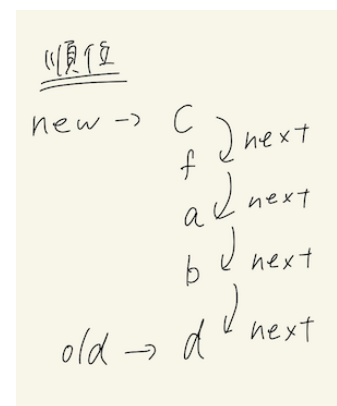 順位
new → c
next
f
next
a
next
b
next
old → d